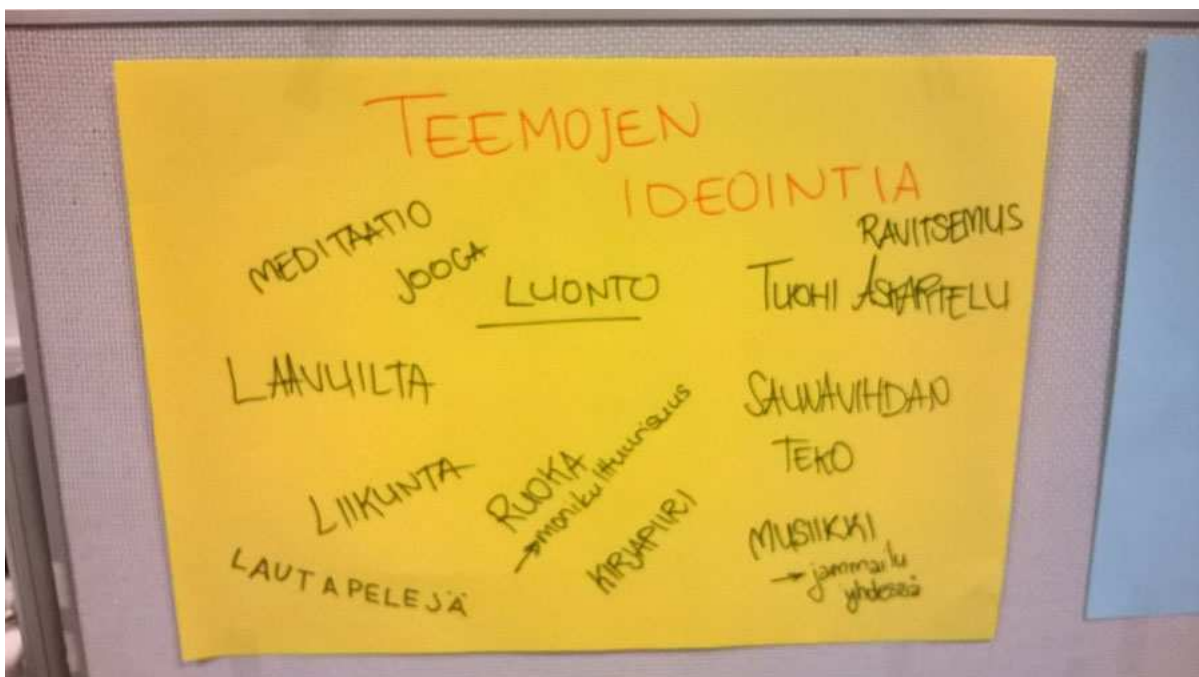 TEEMOJEN
IDEOINTIA
MEDITAATIO
JOOGA
LUONTO
RAVITSEMUS
TUOHI ASKARTELU
LAAVUILTA
SAUNAVIHDAN
TEKO
LIIKUNTA
RUOKA
→ monikulttuurisuus
KIRJAPIIRI
MUSIIKKI
→ jammailu
yhdessä
LAUTAPELEJÄ